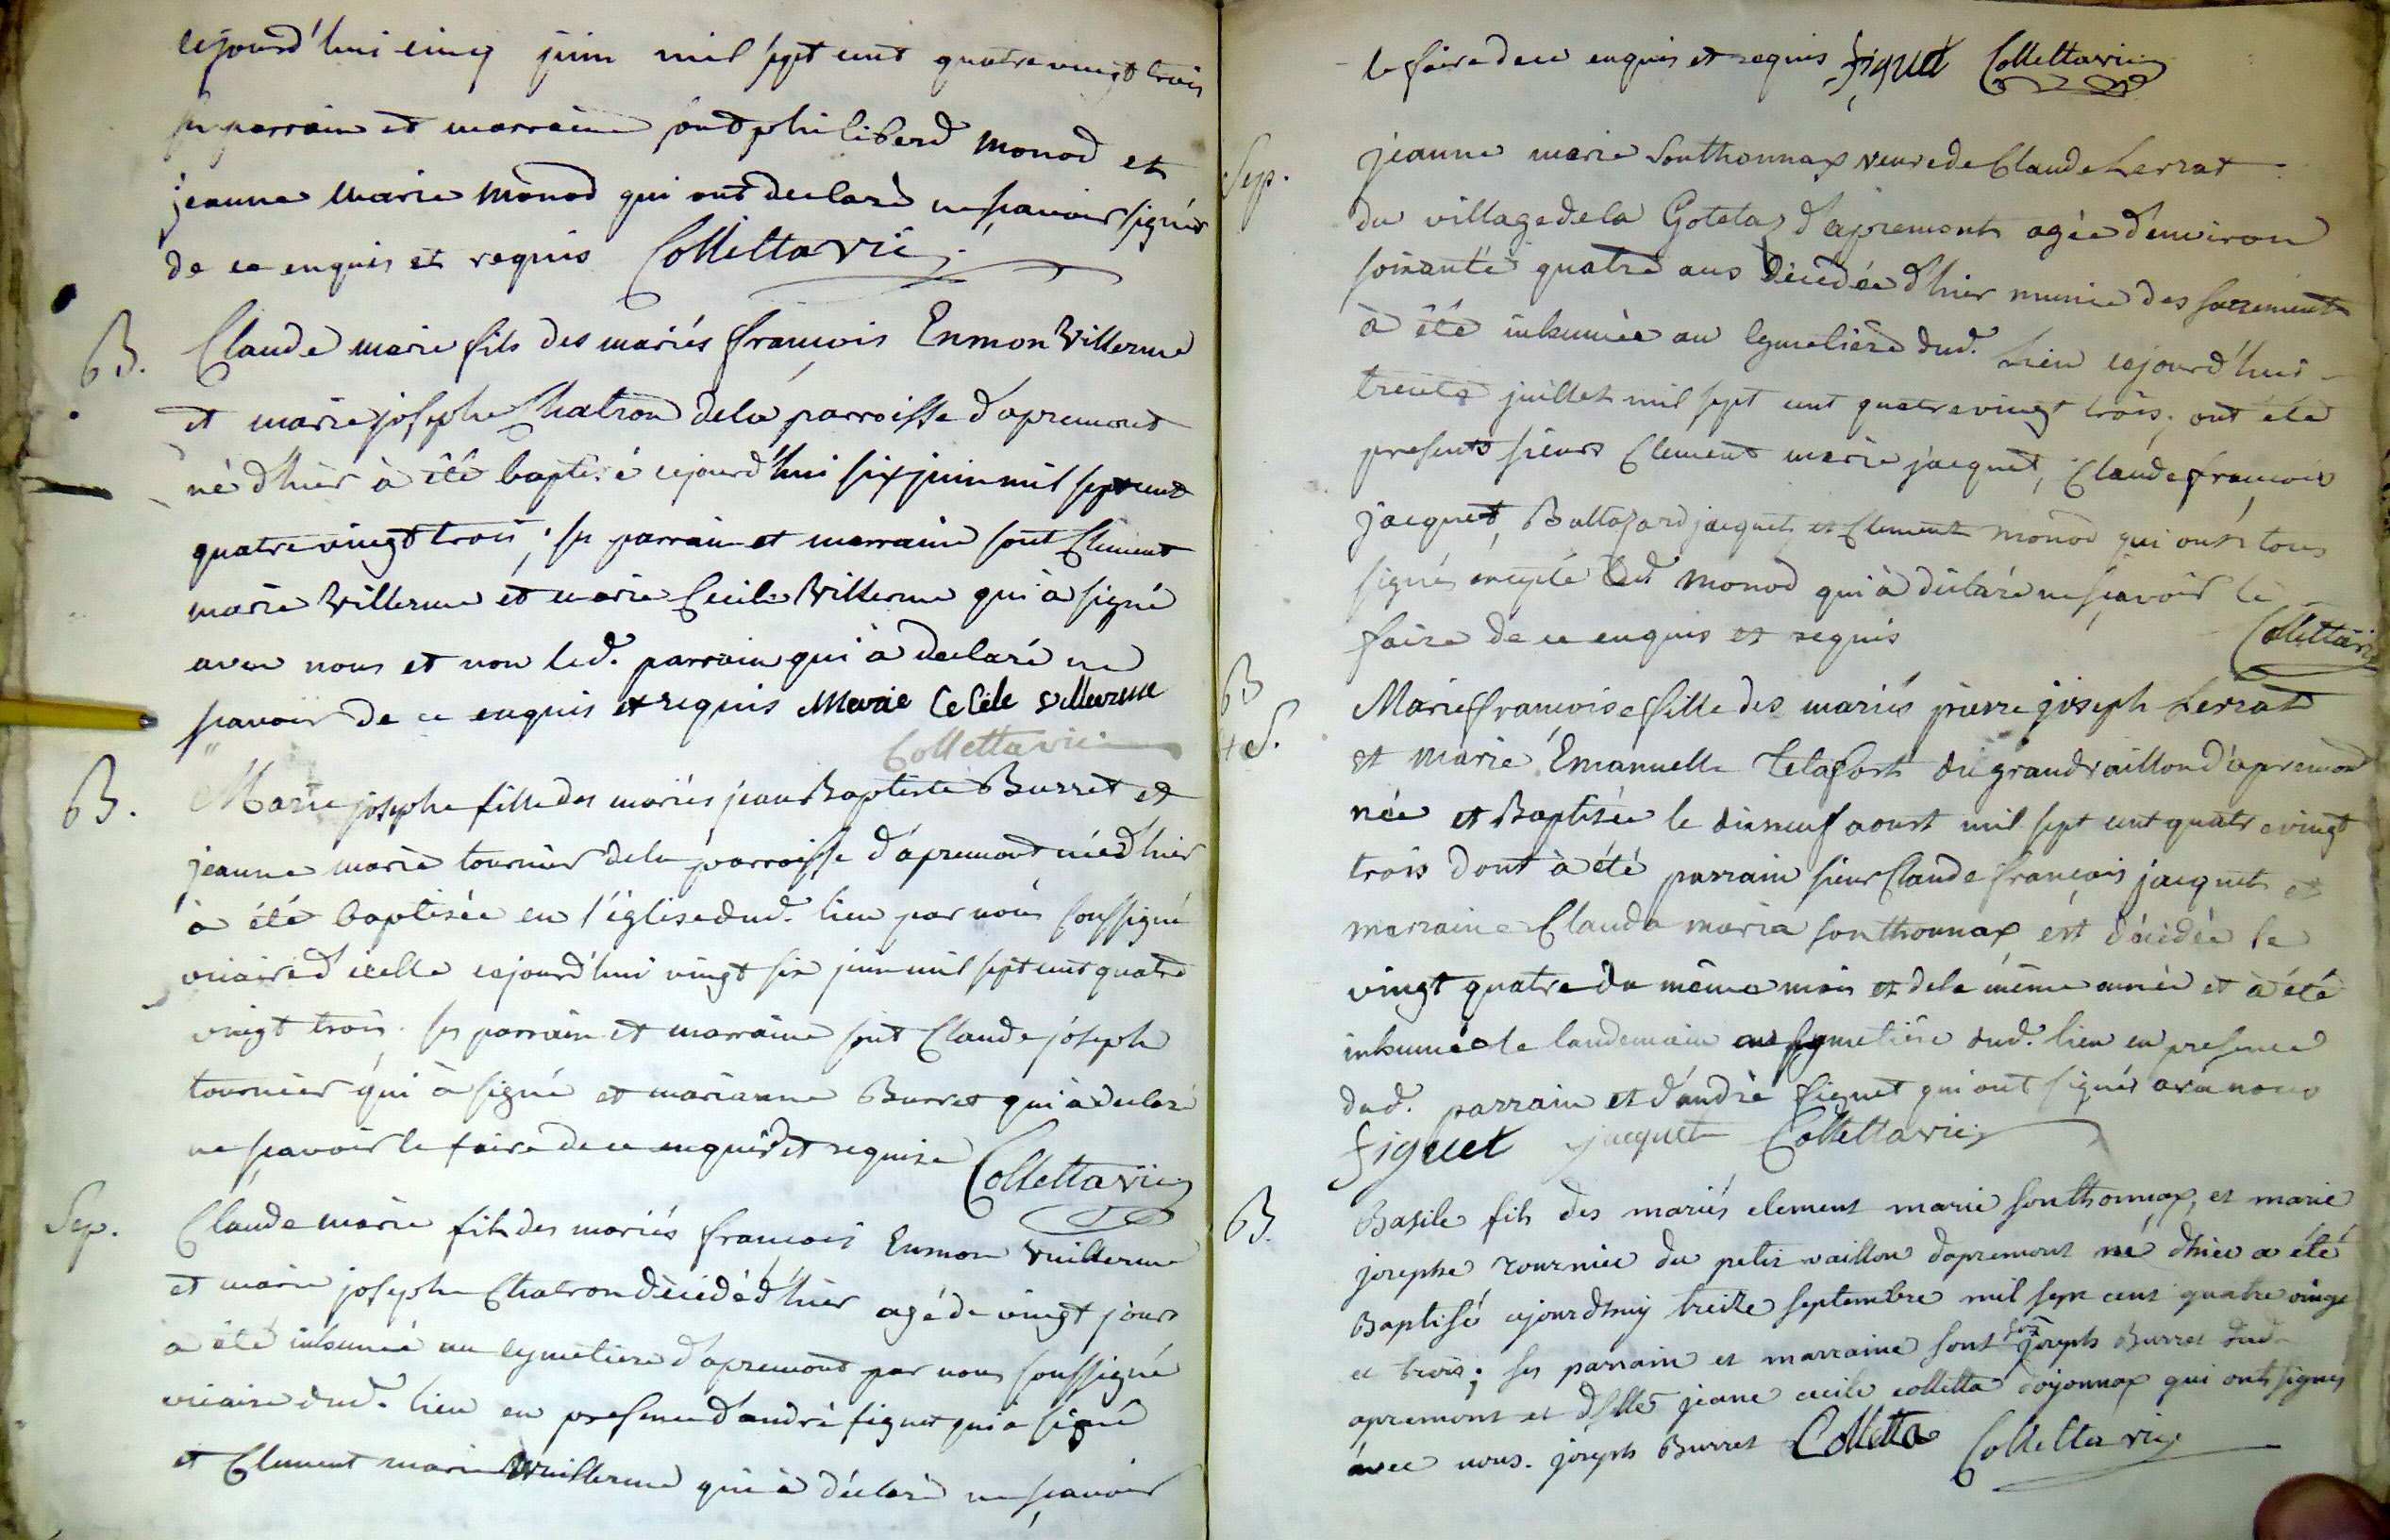 cejourd'hui cinq juin mil sept cent quatre vingt trois
ses parrain et marraine sont philiberd monod et
jeanne marie monod qui ont declaré ne sçavoir signer
de ce enquis et requis Colletta vic.
B. Claude marie fils des mariés françois Enmon Villerme
et marie josephe Chatron dela parroisse d'apremont
né d'hier à été baptisé cejourd'hui six juin mil sept cent
quatre vingt trois ; ses parrain et marraine sont Clement
marie Villerme et marie Cecile Villerme qui à signé
avec nous et non led. parrain qui à declaré ne
scavoir de ce enquis et requis Marie Cecile villerme
Colletta vic.
B. Marie josephe fille des mariés jean Baptiste Burret et
jeanne marie tournier dela parroisse d'apremont née d'hier
à été baptisée en l'église dud. lieu par nous soussigné
vicaire d'icelle cejourd'hui vingt six juin mil sept cent quatre
vingt trois. ses parrain et marraine sont Claude joseph
tournier qui à signé et marianne Burret qui à declaré
ne sçavoir le faire de ce enquis et requise Colletta vic.
Sep. Claude marie fils des mariés françois Enmon Vuillerme
et marie josephe Chatron décédé d'hier agé de vingt jours
a été inhumé au cymetiere d'apremont par nous soussigné
vicaire dud. lieu en presence d'andré figuet qui à signé
et Clement marie Vuillerme qui à déclaré ne sçavoir
le faire de ce enquis et requis figuet Colletta vic.
Sep. jeanne marie Sonthonnax veuve de Claude Lerrat
du village dela Goteta d'apremont agée d'environ
soixante quatre ans décédée d'hier munie des sacrements
à été inhumée au cymetière dud. Lieu cejourd'hui
trente juillet mil sept cent quatre vingt trois, ont été
presents sieurs Clement marie jacquet, Claude françois
jacquet, Baltazard jacquet et Clement monod qui ont tous
signés excepté led. monod qui à déclaré ne sçavoir le
faire de ce enquis et requis Colletta vic.
B. Marie françoise fille des mariés pierre joseph Lerrat
et S. et Marie Emanuelle Telafort du grand vaillon d'apremont
née et Baptisée le dixneuf aoust mil sept cent quatre vingt
trois dont à été parrain sieur Claude françois jacquet et
marraine Clauda maria Sonthonnax est décédée le
vingt quatre du même mois et dela même année et à été
inhumée le landemain au cymetière dud. lieu en presence
dud. parrain et d'andré figuet qui ont signés avec nous
figuet jacquet Colletta vic.
B. Basile fils des mariés clement marie Sonthonnax, et marie
josephe tournier du petit vaillon dapremont né dhier a été
Baptisé cejourdhuy treize septembre mil sept cent quatre vingt
et trois ; ses parrain et marraine sont joseph Burret dud.
apremont et dlle jeane cecile colletta doyonnax qui ont signés
avec nous. joseph Burret Colletta Colletta vic.